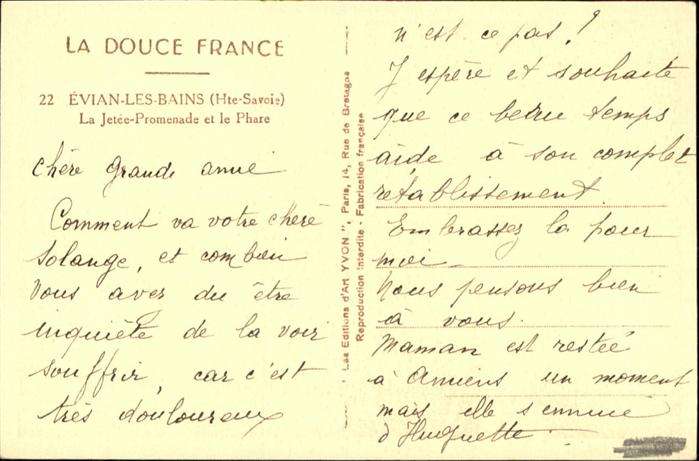 LA DOUCE FRANCE
22 ÉVIAN-LES-BAINS (Hte-Savoie)
La Jetée-Promenade et le Phare
Chère grande amie
Comment va votre chère
Solange, et combien
vous avez du être
inquiète de la voir
souffrir, car c'est
très douloureux
Les Editions d'Art YVON", Paris, 14, Rue de Bretagne
Reproduction Interdite - Fabrication française
n'est ce pas ?
J'espère et souhaite
que ce beau temps
aide à son complet
rétablissement.
Embrassez la pour
moi.
Nous pensons bien
à vous.
Maman est restée
à Amiens un moment
mais elle s'ennuie
d'Huguette.